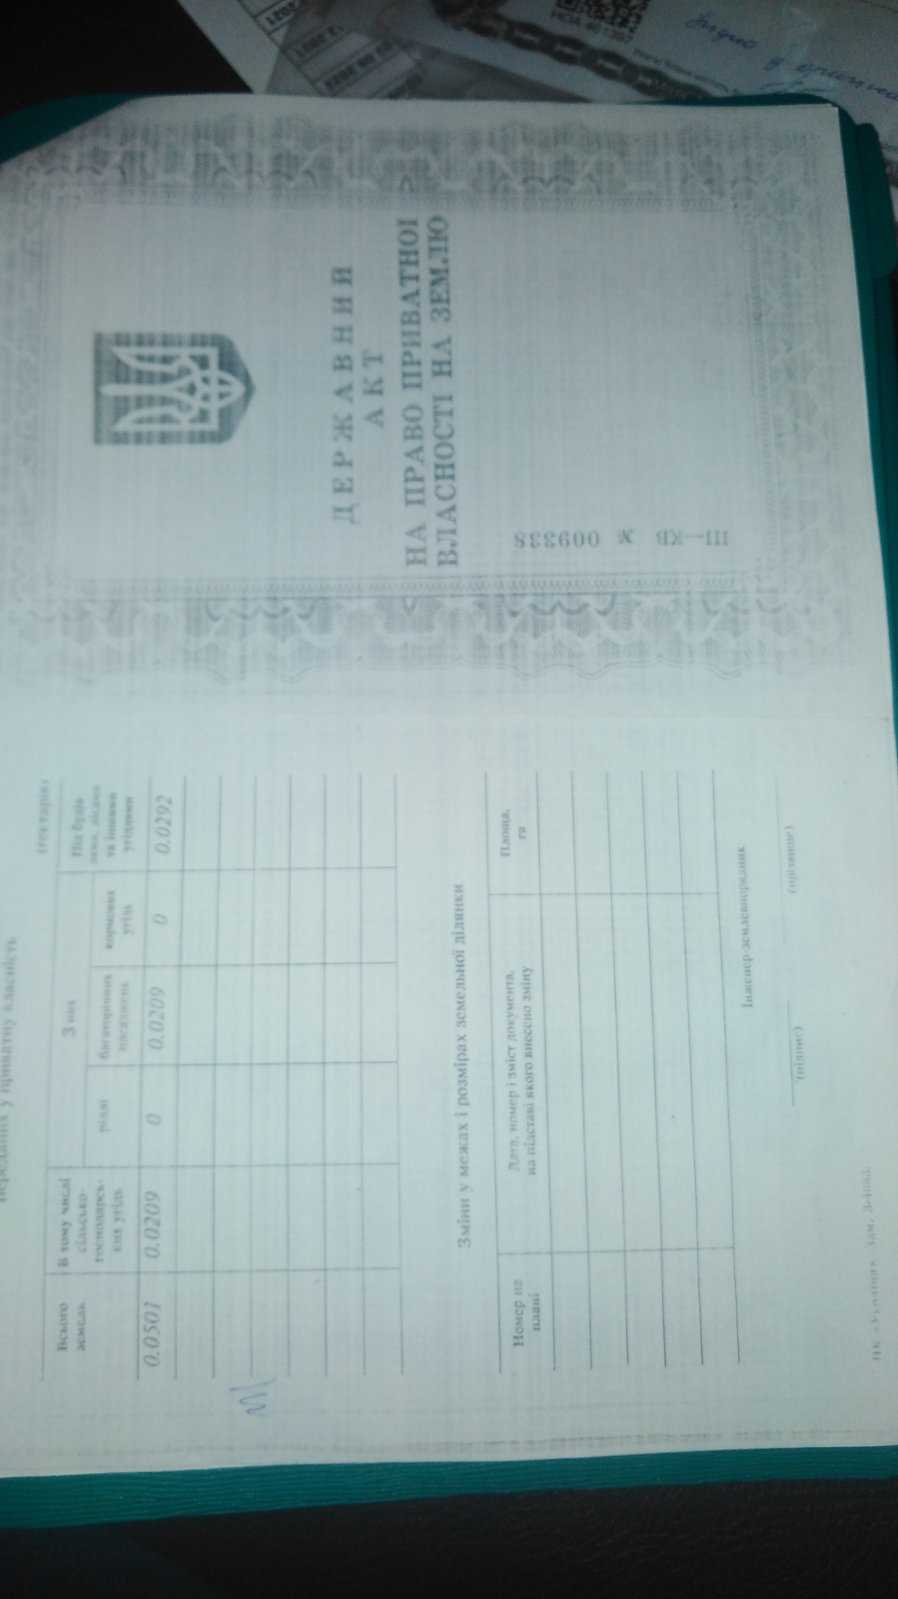 переданих у приватну власність
(гектарів)
Всього
земель
В тому числі
сільсько-
господарсь-
ких угідь
З них
ріллі
багаторічних
насаджень
кормових
угідь
та іншими
угіддями
0.0501 0.0209 0 0.0209 0 0.0292
Зміни у межах і розмірах земельної ділянки
Номер на
плані
Дата, номер і зміст документа,
на підставі якого внесено зміну
Площа,
га
Інженер-землевпорядник
(підпис) (прізвище)
ДЕРЖАВНИЙ
АКТ
НА ПРАВО ПРИВАТНОЇ
ВЛАСНОСТІ НА ЗЕМЛЮ
III—КВ № 009338